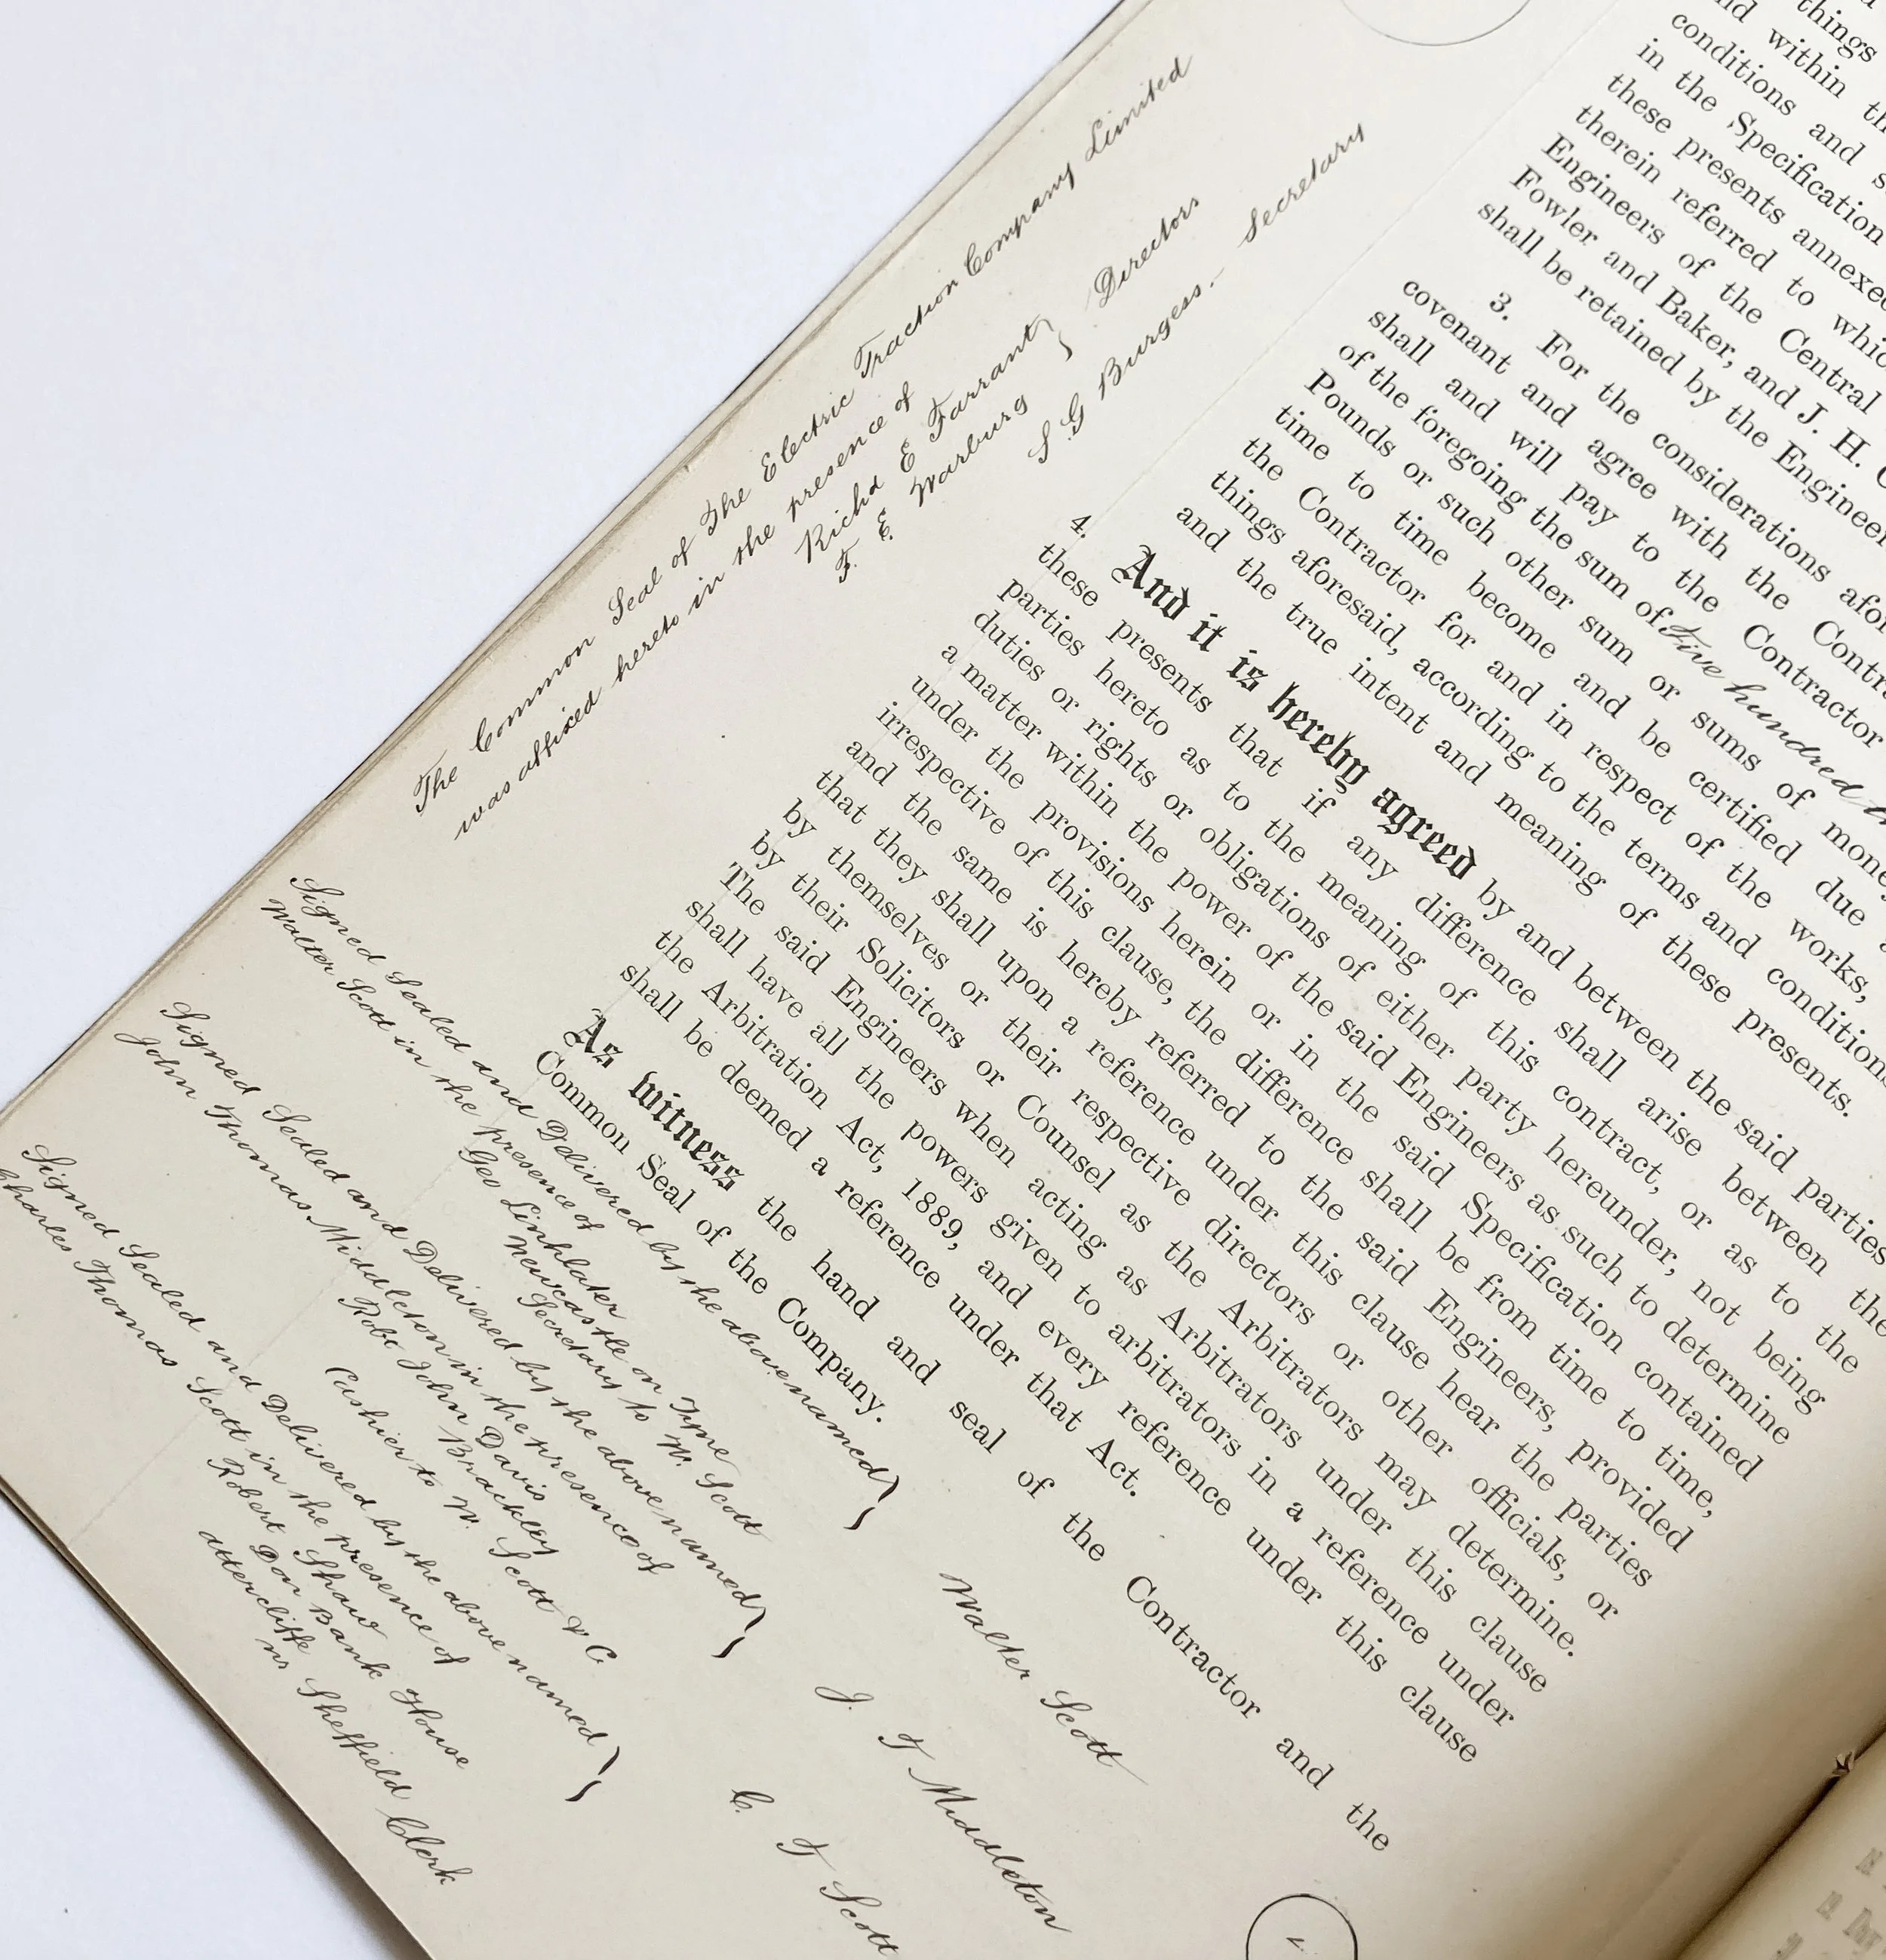 things
within
conditions and
in the Specification
these presents annexed
therein referred to
Engineers of the Central
Fowler and Baker, and J. H.
shall be retained by the Engineer
3. For the considerations
covenant and agree with the
shall and will pay to the Contractor
of the foregoing the sum of Five hundred
Pounds or such other sum or sums of money
time to time become and be certified due
the Contractor for and in respect of the works,
things aforesaid, according to the terms and conditions
and the true intent and meaning of these presents.
4. And it is hereby agreed by and between the said parties
these presents that if any difference shall arise between the
parties hereto as to the meaning of this contract, or as to the
duties or rights or obligations of either party hereunder, not being
a matter within the power of the said Engineers as such to determine
under the provisions herein or in the said Specification contained
irrespective of this clause, the difference shall be from time to time,
and the same is hereby referred to the said Engineers, provided
that they shall upon a reference under this clause hear the parties
by themselves or their respective directors or other officials, or
by their Solicitors or Counsel as the Arbitrators may determine.
The said Engineers when acting as Arbitrators under this clause
shall have all the powers given to arbitrators in a reference under
the Arbitration Act, 1889, and every reference under this clause
shall be deemed a reference under that Act.
As witness the hand and seal of the Contractor and the
Common Seal of the Company.
Signed Sealed and Delivered by the above named
Walter Scott in the presence of
Geo Linklater
Newcastle on Tyne
Secretary to W. Scott
Walter Scott
Signed Sealed and Delivered by the above named
John Thomas Middleton in the presence of
Robt John Davis
Brackley
Cashier to W. Scott & C
J. T Middleton
Signed Sealed and Delivered by the above named
Charles Thomas Scott in the presence of
Robert Shaw
Don Bank House
Attercliffe
nr Sheffield Clerk
C. T Scott
The Common Seal of The Electric Traction Company Limited
was affixed hereto in the presence of
Richd E Farrant
F. E. Warburg
Directors
S. G Burgess. - Secretary